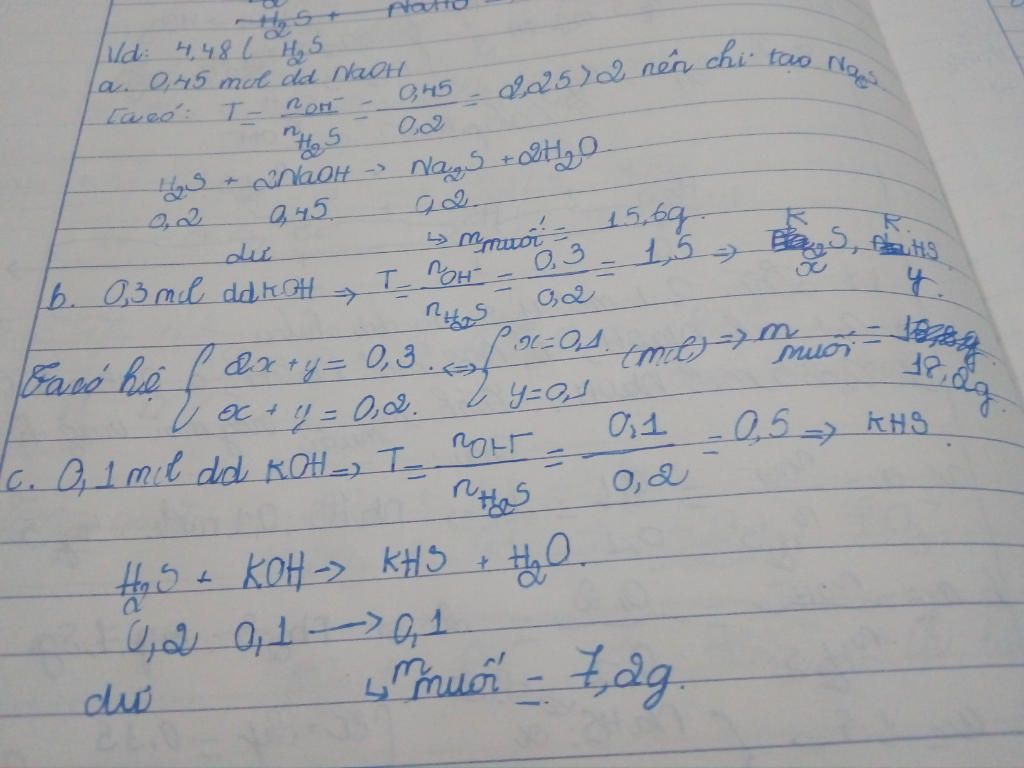 H2S + NaHS
Vd: 4,48 l H2S
a. 0,45 mol dd NaOH
Ta có: T = nOH-/nH2S = 0,45/0,2 = 2,25 > 2 nên chỉ tạo Na2S.
H2S + 2NaOH → Na2S + 2H2O
0,2 0,45 0,2
dư ↳ m muối = 15,6g.
b. 0,3 mol dd KOH ⇒ T = nOH-/nH2S = 0,3/0,2 = 1,5 ⇒ K2S, KHS
x y.
Ta có hệ { 2x + y = 0,3. x + y = 0,2. ⇔ { x = 0,1. y = 0,1 (mol) ⇒ m muối = 18,2g.
c. 0,1 mol dd KOH ⇒ T = nOH-/nH2S = 0,1/0,2 = 0,5 ⇒ KHS.
H2S + KOH → KHS + H2O.
0,2 0,1 → 0,1
dư ↳ m muối = 7,2g.